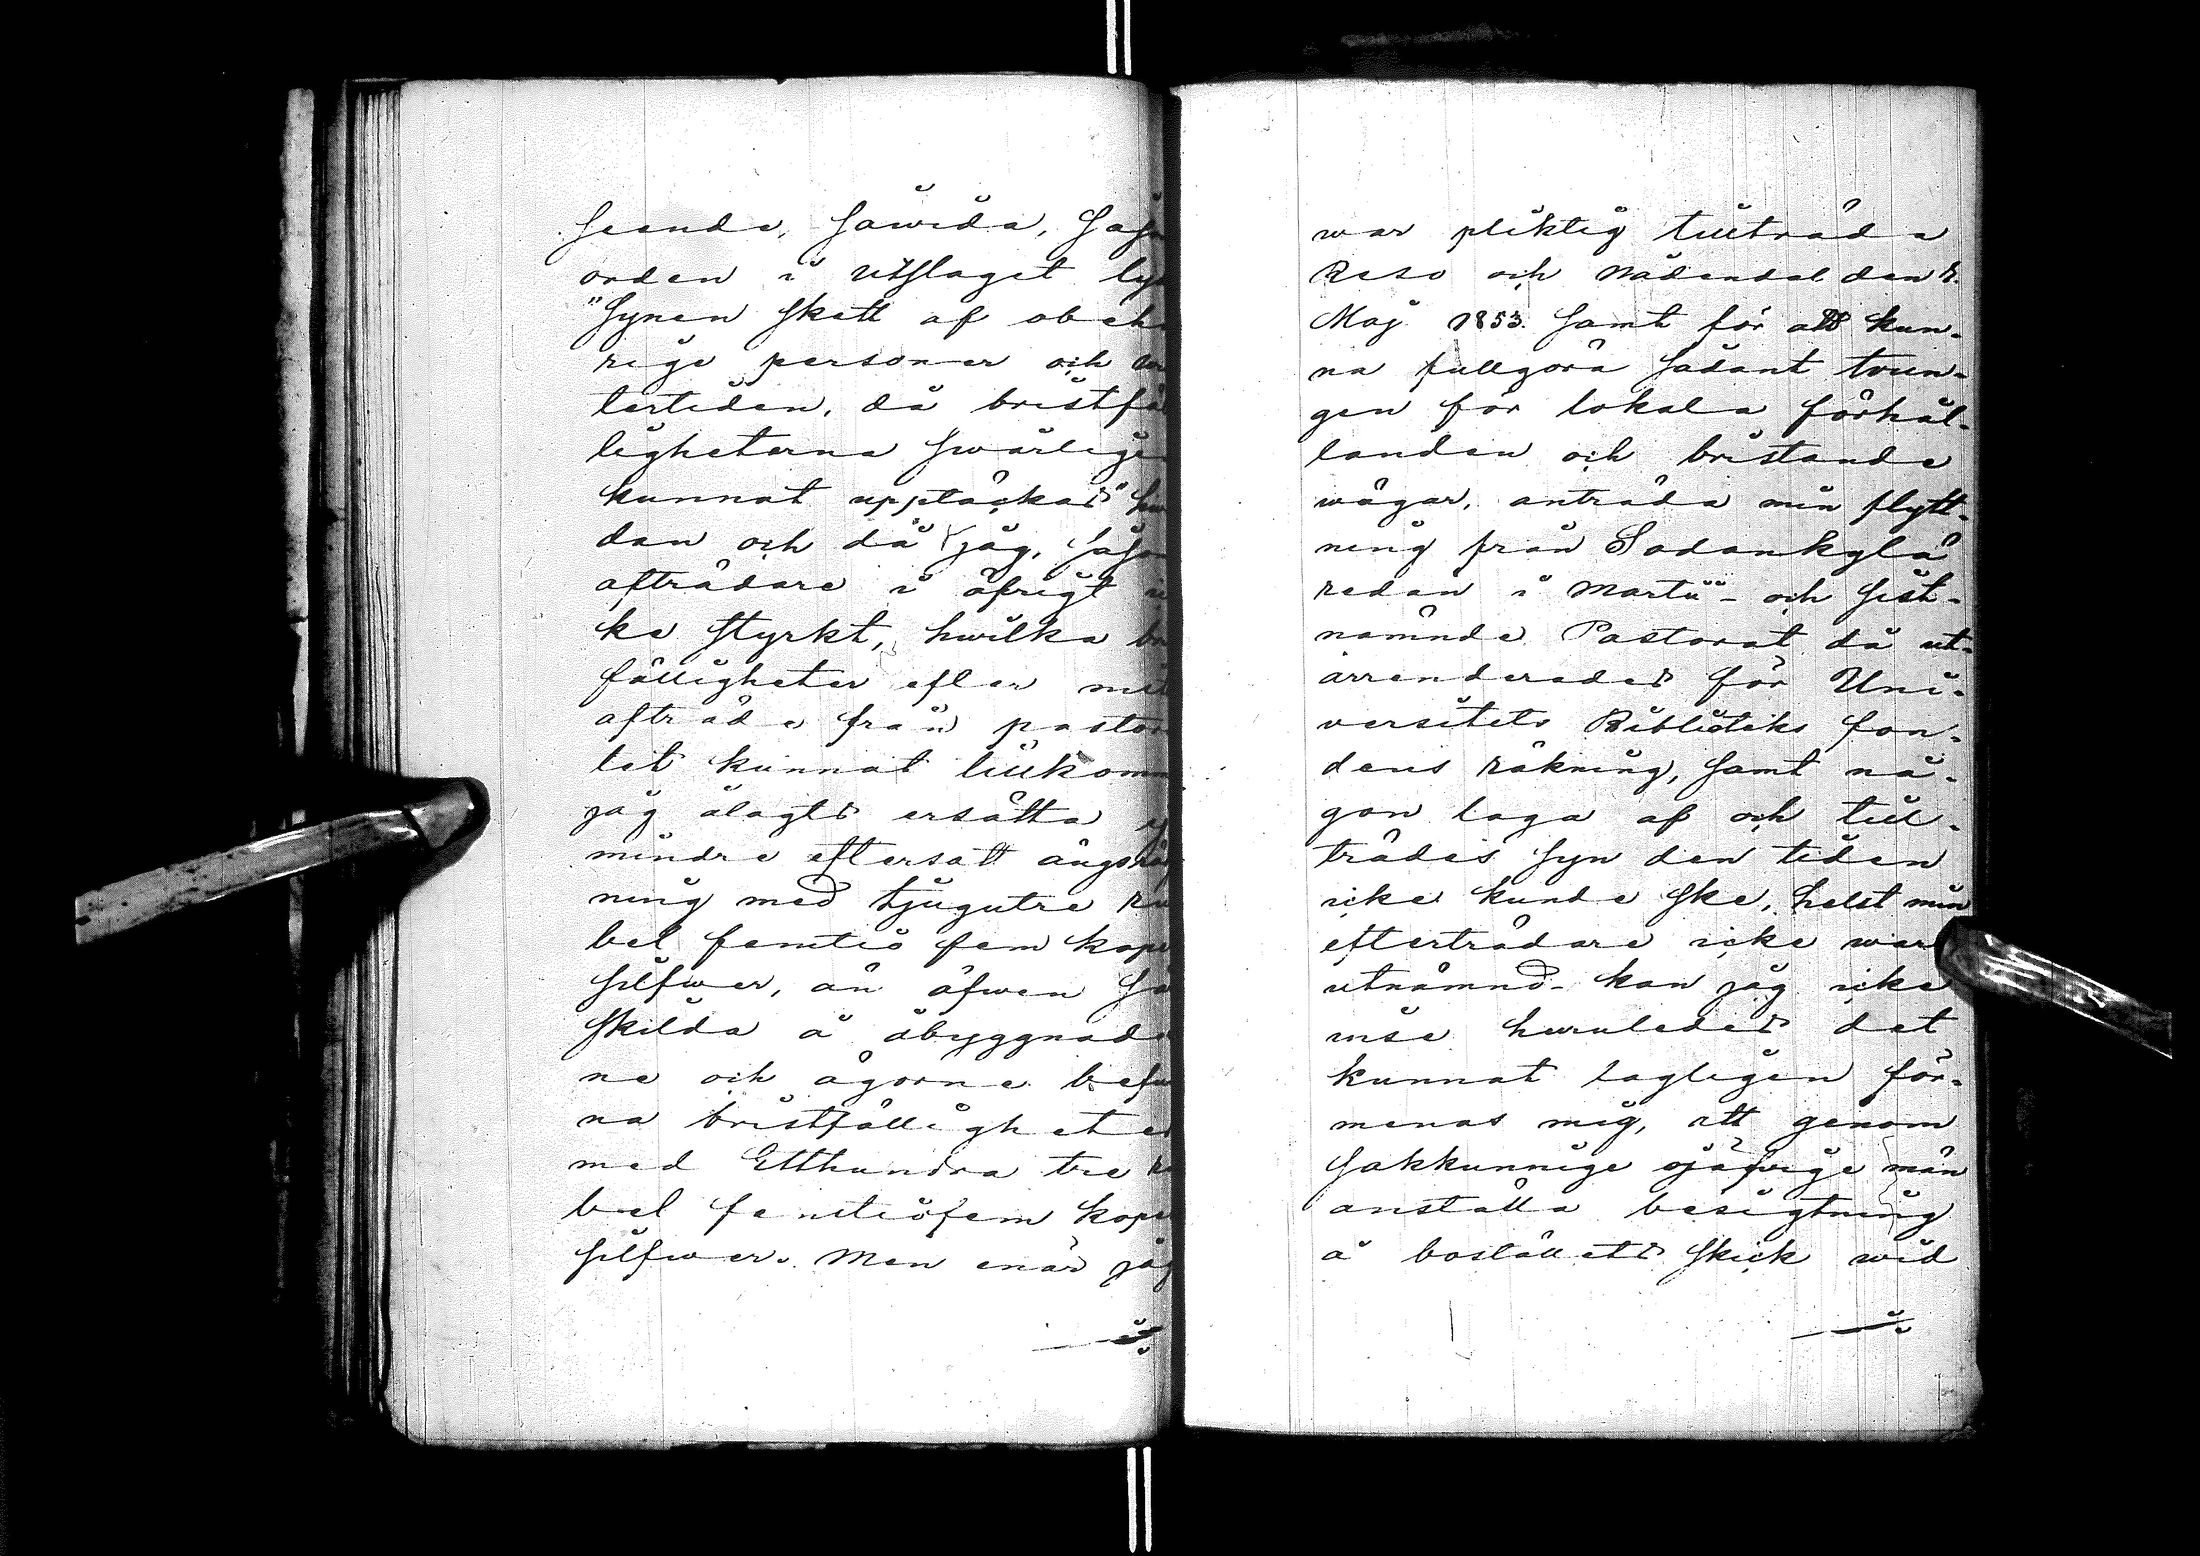 seende, sawida, såso
orden i utslaget ly
"Synen skett af obehö
rige personer och wi
tertiden, då bristfäl
ligheterna swårligen
kunnat upptäckas" 
dan och då jag, såso
afträdare i öfrigt ic
ke styrkt, hwilka br
fälligheter efter mit
afträde från pastor
tet kunnat tillkomm
jag ålagts ersätta
mindre eftersatt ängsröj
ning med tjugutre ru
bel femtio fem kope
silfwer, än äfwen sä
skilda å åbyggnade
ne och ägorne befu
na bristfälligheter
med Etthundra tre ru
bel femtiofem kope
silfwer. Men enär jag
war pliktig tillträda
Reso och Nådendal den 1.
Maj 1853. samt för att kun-
na fullgöra sådant twun-
gen för lokala förhål-
landen och bristande
wägar, anträda min flytt-
ning från Sodankylä
redan i Martii - och sist-
nämnde Pastorat då ut-
arrenderades för Uni-
versitets Biblioteks fon-
dens räkning, samt nå-
gon laga af och till-
trädes syn den tiden
icke kunde ske, helst min
efterträdare icke war
utnämnd - kan jag icke
inse huruledes det
kunnat lagligen för-
menas mig, att genom
sakkunnige ojäfwige män
anställa besigtning
å boställets skick wid